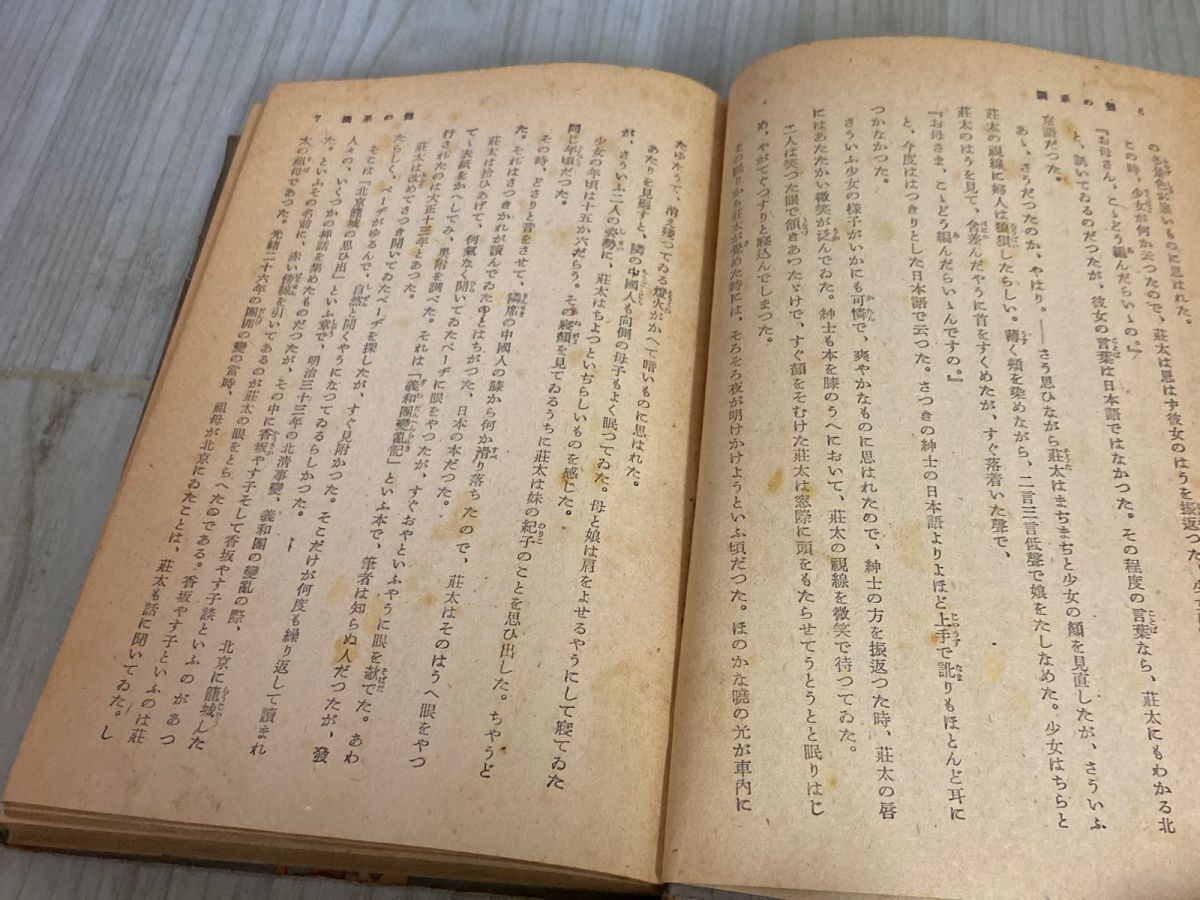 の名景色が惡いものに思はれた。
この時、少女が何か云つたので、莊太は思はず彼女のはうを振返つた。少
『お母さん、こゝどう編んだらいゝの。』
と、訊いてゐるのだつたが、彼女の言葉は日本語ではなかつた。その程度の言葉なら、莊太にもわかる北
京語だつた。
あゝ、さうだつたのか、やはり。――さう思ひながら莊太はまぢまぢと少女の顏を見直したが、さういふ
莊太の視線に婦人は狼狽したらしい。薄く頰を染めながら、二言三言低聲で娘をたしなめた。少女はちらと
莊太のはうを見て、含羞んだやうに首をすくめたが、すぐ落着いた聲で、
『お母さま、こゝどう編んだらいゝんですの。』
と、今度ははつきりとした日本語で云つた。さつきの紳士の日本語よりよほど上手で訛りもほとんど耳に
つかなかつた。
さういふ少女の樣子がいかにも可憐で、爽やかなものに思はれたので、紳士の方を振返つた時、莊太の唇
にはあたたかい微笑が泛んでゐた。紳士も本を膝のうへにおいて、莊太の視線を微笑で待つてゐた。
二人は笑つた眼で頷きあつたゞけで、すぐ顏をそむけた莊太は窓際に頭をもたらせてうとうとと眠りはじ
め、やがてぐつすりと寢込んでしまつた。
まの眠りから莊太が覺めた時には、そろそろ夜が明けかけようといふ頃だつた。ほのかな曉の光が車内に
6
たゆたうて、消え殘つてゐる燈火がかへて暗いものに思はれた。
あたりを見廻すと、隣の中國人も向側の母子もよく眠つてゐた。母と娘は肩をよせるやうにして寢てゐた
が、さういふ二人の姿勢に、莊太はちよつといぢらしいものを感じた。
少女の年頃は十五か六だらう。その寢顏を見てゐるうちに莊太は妹の紀子のことを思ひ出した。ちやうど
同じ年頃だつた。
その時、どさりと音をさせて、隣席の中國人の膝から何か滑り落ちたので、莊太はそのはうへ眼をやつ
た。それはさつきかれが讀んでゐたのとはちがつた、日本の本だつた。
莊太は拾ひあげて、何氣なく開いてゐたペーヂに眼をやつたが、すぐおやといふやうに眼を欹てた。あわ
てゝ表紙をかへしてみ、奧附を調べた。それは「義和團變亂記」といふ本で、筆者は知らぬ人だつたが、發
行されたのは大正十三年とあつた。
莊太は改めてさつき開いてゐたペーヂを探したが、すぐ見附かつた。そこだけが何度も繰り返して讀まれ
たらしく、ペーヂがゆるんで、自然と開くやうになつてゐるらしかつた。
そこは「北京籠城の思ひ出」といふ章で、明治三十三年の北淸事變、義和團の變亂の際、北京に籠城した
人々の、いくつかの揷話を集めたものだつたが、その中に香坂やす子談といふのがあつ
た。といふその名前に、赤い傍線を引いてあるのが莊太の眼をとらへたのである。香坂やす子といふのは莊
太の祖母であつた。光緖二十六年の團匪の變の當時、祖母が北京にゐたことは、莊太も話に聞いてゐた。し
7